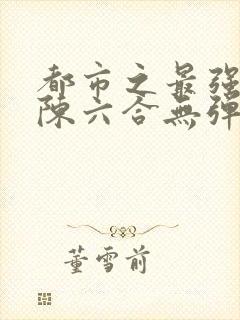 都市之最强
陈六合无弹
董雪前